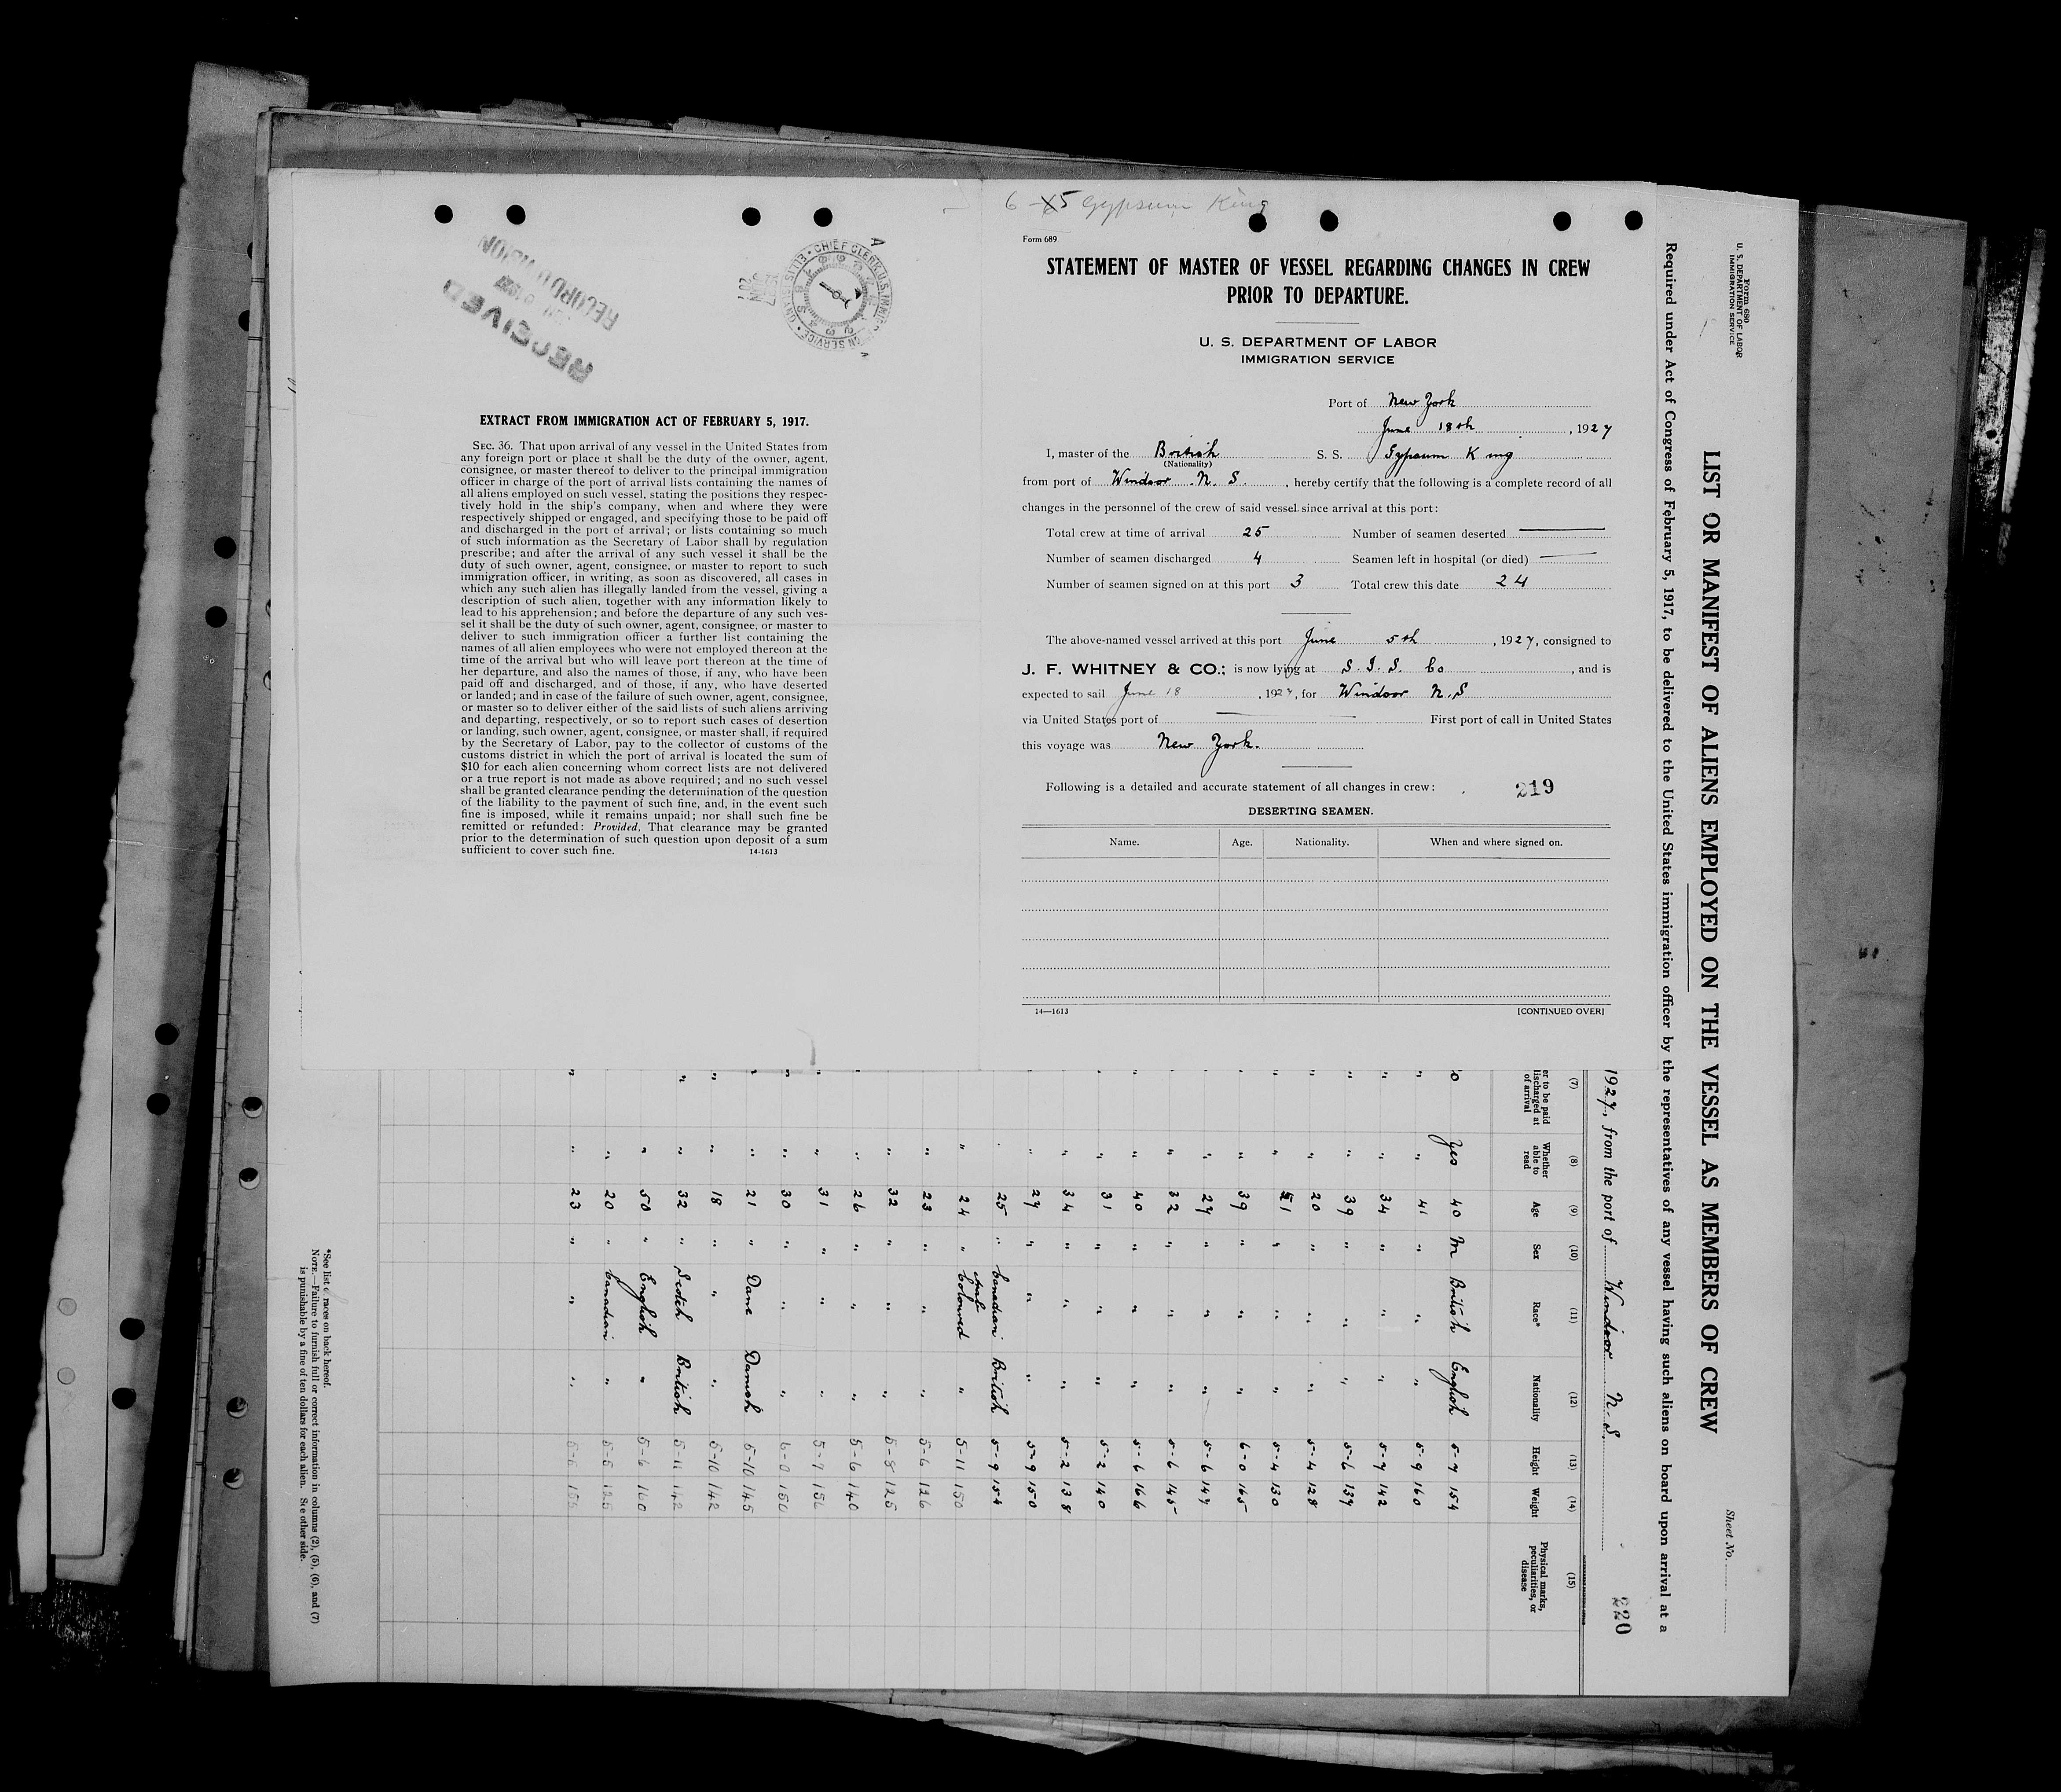 6-5 Gypsum King
Form 689
STATEMENT OF MASTER OF VESSEL REGARDING CHANGES IN CREW
PRIOR TO DEPARTURE.
U. S. DEPARTMENT OF LABOR
IMMIGRATION SERVICE
Port of New York
June 18th, 1927
I, master of the British S. S. Gypsum King
(Nationality)
from port of Windsor N. S., hereby certify that the following is a complete record of all
changes in the personnel of the crew of said vessel since arrival at this port:
Total crew at time of arrival 25 Number of seamen deserted
Number of seamen discharged 4 Seamen left in hospital (or died)
Number of seamen signed on at this port 3 Total crew this date 24
The above-named vessel arrived at this port June 5th, 1927, consigned to
J. F. WHITNEY & CO.; is now lying at S. I. S. Co, and is
expected to sail June 18, 1927, for Windsor N.S
via United States port of First port of call in United States
this voyage was New York.
Following is a detailed and accurate statement of all changes in crew:
219
DESERTING SEAMEN.
Name. Age. Nationality. When and where signed on.
14—1613 [CONTINUED OVER]
RECEIVED
RECORD DIVISION
CHIEF CLERK, U.S. IMMIGRATION SERVICE
EXTRACT FROM IMMIGRATION ACT OF FEBRUARY 5, 1917.
SEC. 36. That upon arrival of any vessel in the United States from
any foreign port or place it shall be the duty of the owner, agent,
consignee, or master thereof to deliver to the principal immigration
officer in charge of the port of arrival lists containing the names of
all aliens employed on such vessel, stating the positions they respec-
tively hold in the ship's company, when and where they were
respectively shipped or engaged, and specifying those to be paid off
and discharged in the port of arrival; or lists containing so much
of such information as the Secretary of Labor shall by regulation
prescribe; and after the arrival of any such vessel it shall be the
duty of such owner, agent, consignee, or master to report to such
immigration officer, in writing, as soon as discovered, all cases in
which any such alien has illegally landed from the vessel, giving a
description of such alien, together with any information likely to
lead to his apprehension; and before the departure of any such ves-
sel it shall be the duty of such owner, agent, consignee, or master to
deliver to such immigration officer a further list containing the
names of all alien employees who were not employed thereon at the
time of the arrival but who will leave port thereon at the time of
her departure, and also the names of those, if any, who have been
paid off and discharged, and of those, if any, who have deserted
or landed; and in case of the failure of such owner, agent, consignee,
or master so to deliver either of the said lists of such aliens arriving
and departing, respectively, or so to report such cases of desertion
or landing, such owner, agent, consignee, or master shall, if required
by the Secretary of Labor, pay to the collector of customs of the
customs district in which the port of arrival is located the sum of
$10 for each alien concerning whom correct lists are not delivered
or a true report is not made as above required; and no such vessel
shall be granted clearance pending the determination of the question
of the liability to the payment of such fine, and, in the event such
fine is imposed, while it remains unpaid; nor shall such fine be
remitted or refunded: Provided, That clearance may be granted
prior to the determination of such question upon deposit of a sum
sufficient to cover such fine. 14-1613
Form 680
U. S. DEPARTMENT OF LABOR
IMMIGRATION SERVICE
Sheet No.
LIST OR MANIFEST OF ALIENS EMPLOYED ON THE VESSEL AS MEMBERS OF CREW
Required under Act of Congress of February 5, 1917, to be delivered to the United States immigration officer by the representatives of any vessel having such aliens on board upon arrival at a
1927, from the port of Windsor N. S. 220
(7) (8) (9) (10) (11) (12) (13) (14) (15)
er to be paid discharged at of arrival Whether able to read Age Sex Race* Nationality Height Weight Physical marks, peculiarities, or disease
Yes 40 M British English 5-7 154
" " 41 " " " 5-9 160
" " 34 " " " 5-7 142
" " 39 " " " 5-6 139
" 20 " " " 5-4 128
" 51 " " " 5-4 130
" 39 " " " 6-0 165
" 27 " " " 5-6 147
" 32 " " " 5-6 145
" " 40 " " " 5-6 166
" " 31 " " " 5-2 140
" " 34 " " " 5-2 138
" 27 " " " 5-9 150
25 " Canadian British 5-9 154
" 24 " Coloured " 5-11 150
" 23 " " " 5-6 126
" " 32 " " " 5-8 125
" " 26 " " " 5-6 140
" " 31 " " " 5-7 156
" " 30 " " " 6-0 150
" " 21 " Dane Danish 5-10 145
" " 18 " " " 5-10 142
" " 32 " Scotch British 5-11 142
" 50 " English " 5-6 160
" 20 " Canadian " 5-5 125
" " 23 " " " 5-6 156
*See list of races on back hereof.
NOTE.—Failure to furnish full or correct information in columns (2), (5), (6), and (7)
is punishable by a fine of ten dollars for each alien. See other side.